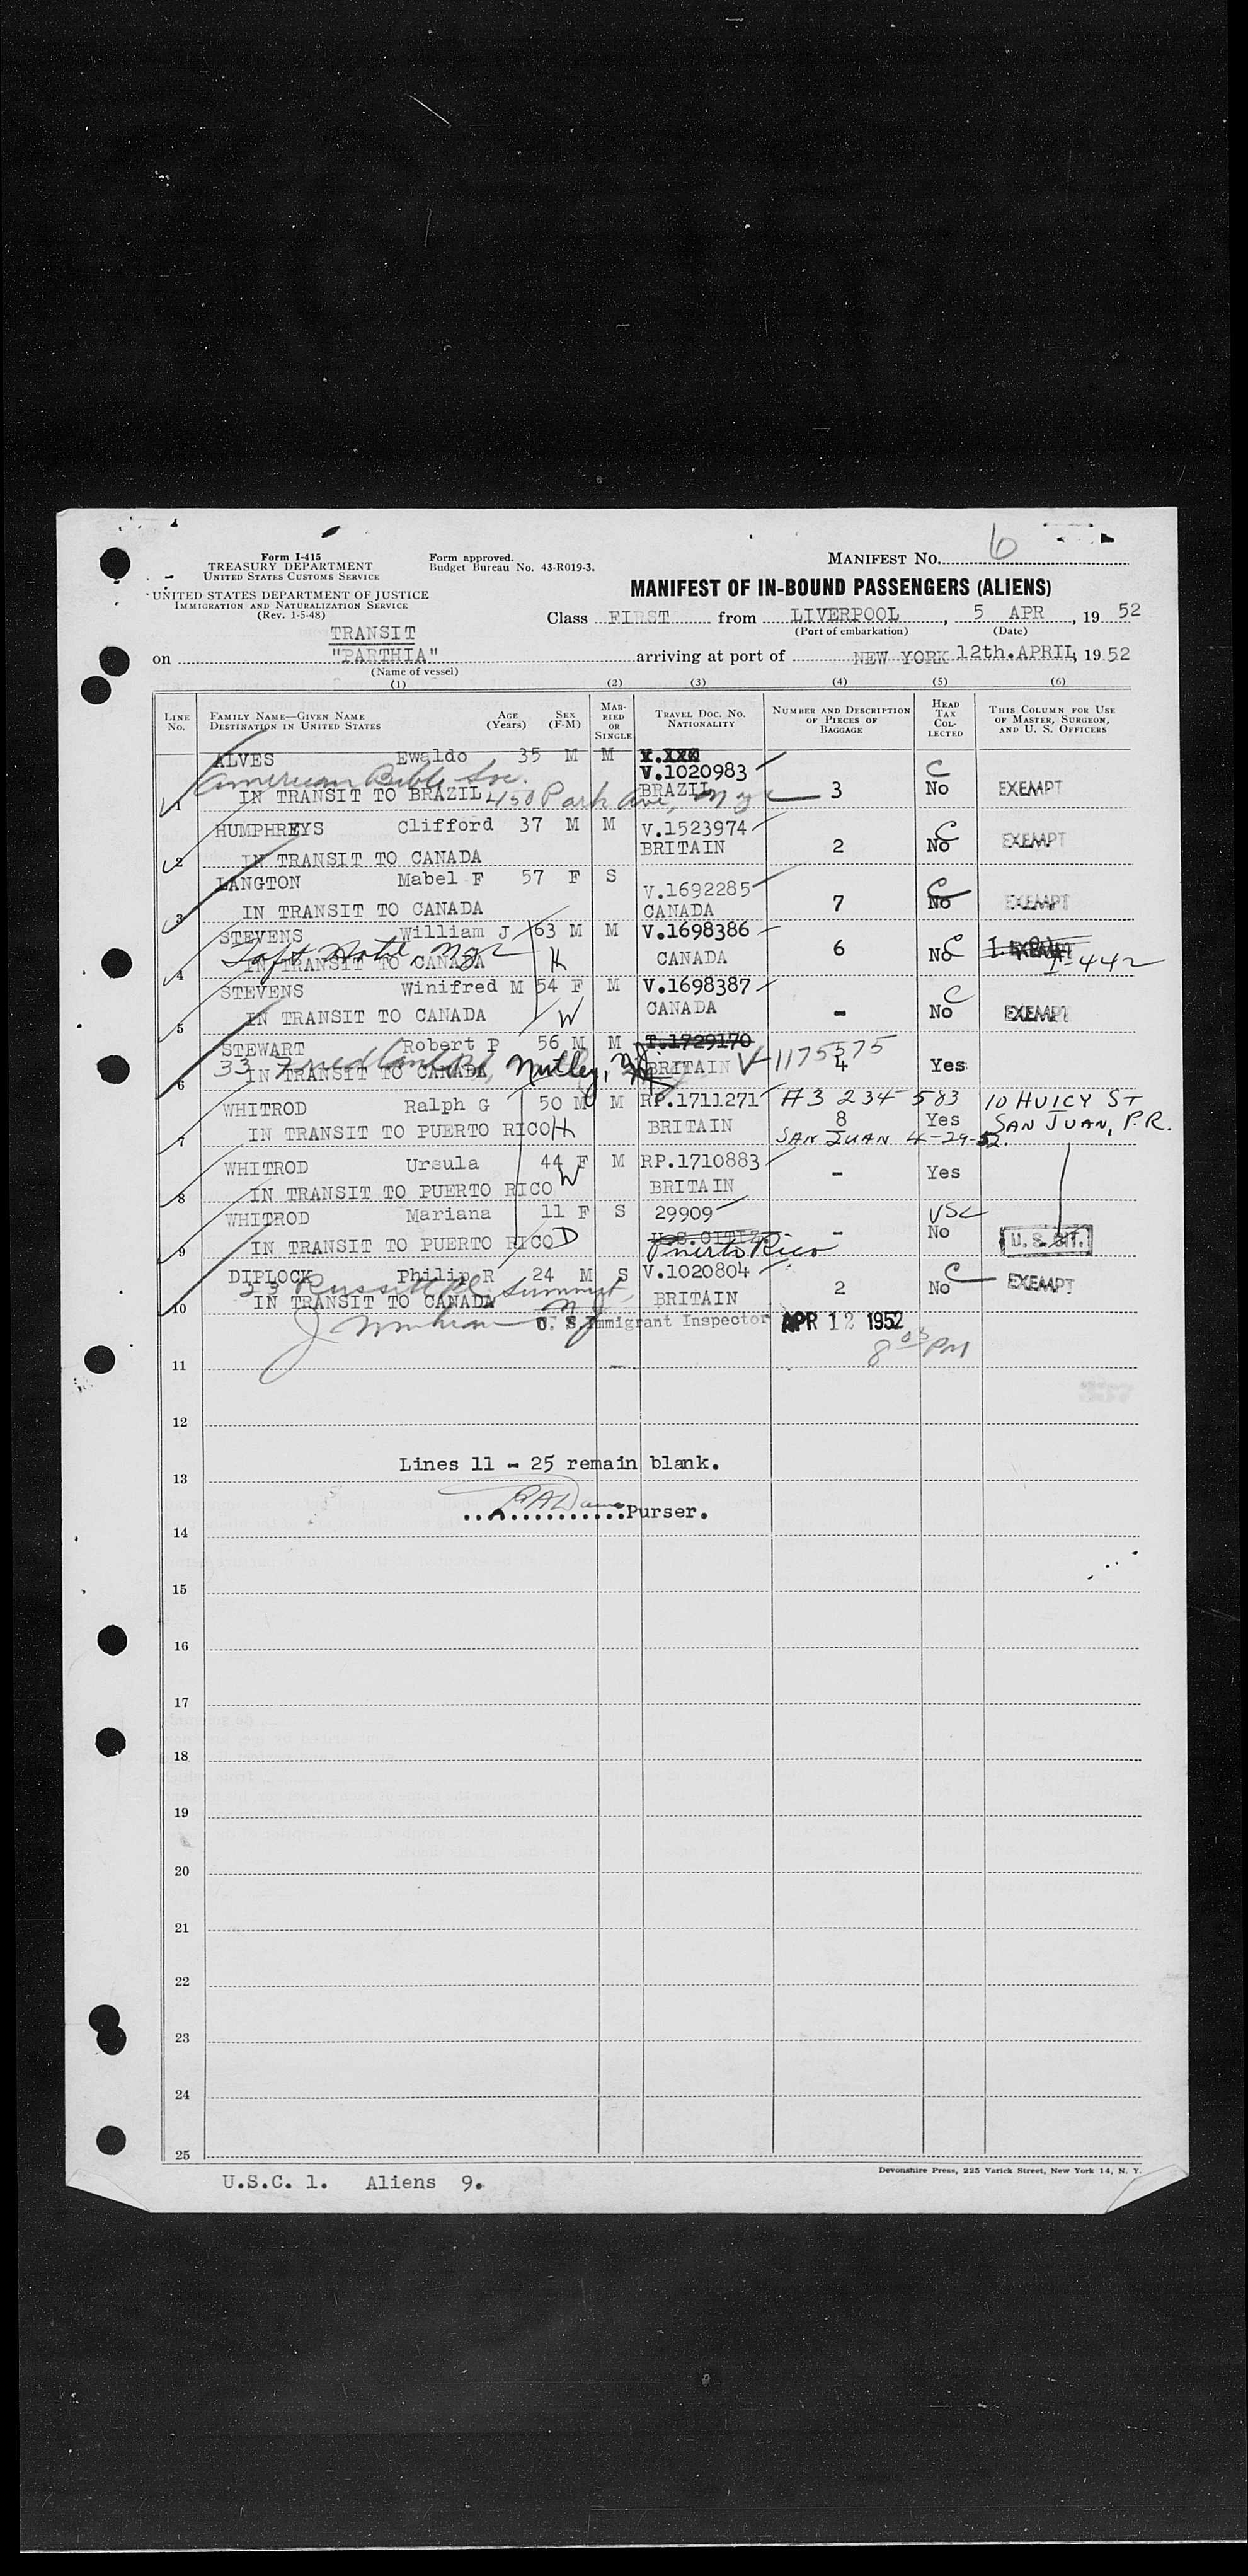 Form I-415
TREASURY DEPARTMENT
UNITED STATES CUSTOMS SERVICE
UNITED STATES DEPARTMENT OF JUSTICE
IMMIGRATION AND NATURALIZATION SERVICE
(Rev. 1-5-48)
Form approved.
Budget Bureau No. 43-R019-3.
MANIFEST NO. 6
MANIFEST OF IN-BOUND PASSENGERS (ALIENS)
Class FIRST from LIVERPOOL, 5 APR, 19 52
(Port of embarkation) (Date)
TRANSIT
on "PARTHIA" arriving at port of NEW YORK 12th.APRIL, 19 52
(Name of vessel)
(1) (2) (3) (4) (5) (6)
LINE NO. FAMILY NAME—GIVEN NAME DESTINATION IN UNITED STATES AGE (Years) SEX (F-M) MARRIED OR SINGLE TRAVEL DOC. NO. NATIONALITY NUMBER AND DESCRIPTION OF PIECES OF BAGGAGE HEAD TAX COLLECTED THIS COLUMN FOR USE OF MASTER, SURGEON, AND U. S. OFFICERS
ALVES Ewaldo 35 M M V.1020983
American Bible Soc.
1 IN TRANSIT TO BRAZIL 450 Park Ave, Nyc BRAZIL 3 C No EXEMPT
HUMPHREYS Clifford 37 M M V.1523974
2 IN TRANSIT TO CANADA BRITAIN 2 C No EXEMPT
LANGTON Mabel F 57 F S V.1692285
3 IN TRANSIT TO CANADA CANADA 7 C No EXEMPT
STEVENS William J 63 M M V.1698386
Taft Hotel, Nyc
4 IN TRANSIT TO CANADA H CANADA 6 No C EXEMPT I-442
STEVENS Winifred M 54 F M V.1698387
5 IN TRANSIT TO CANADA W CANADA - C No EXEMPT
STEWART Robert P 56 M M T.1729170
33 Nutley, NJ
6 IN TRANSIT TO CANADA BRITAIN V-1175575 4 Yes
WHITROD Ralph G 50 M M RP.1711271 A3 234 583 10 HUICY ST
7 IN TRANSIT TO PUERTO RICO H BRITAIN 8 Yes SAN JUAN, P.R.
SAN JUAN 4-29-52.
WHITROD Ursula 44 F M RP.1710883
8 IN TRANSIT TO PUERTO RICO W BRITAIN - Yes
WHITROD Mariana 11 F S 29909 USC
9 IN TRANSIT TO PUERTO RICO D U.S.CITIZ. - No U. S. CIT.
Puerto Rico
DIPLOCK Philip R 24 M S V.1020804
23 Russell Pl, Summit, NJ
10 IN TRANSIT TO CANADA BRITAIN 2 No C EXEMPT
U. S. Immigrant Inspector APR 12 1952
8 05 PM
11
12
Lines 11 - 25 remain blank.
13
Purser.
14
15
16
17
18
19
20
21
22
23
24
25
Devonshire Press, 225 Varick Street, New York 14, N. Y.
U.S.C. 1. Aliens 9.